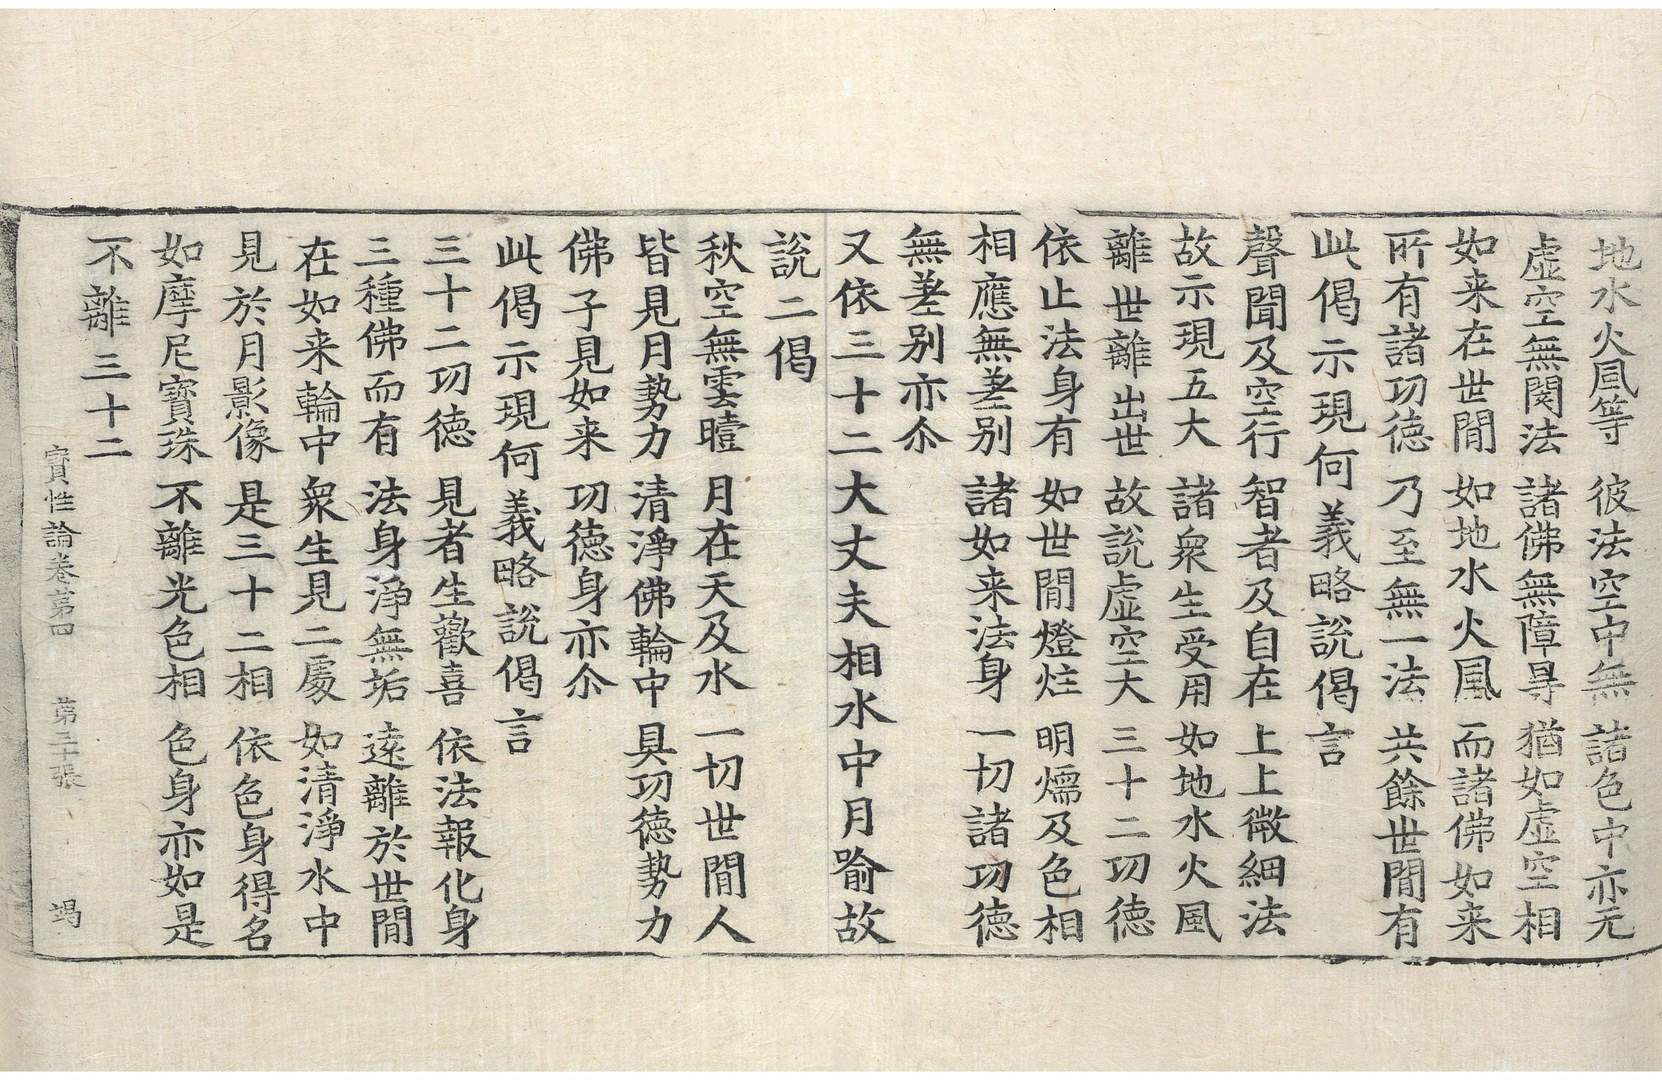 地水火風等 彼法空中無 諸色中亦无
虛空無閡法 諸佛無障㝵 猶如虛空相
如来在世間 如地水火風 而諸佛如来
所有諸功德 乃至無一法 共餘世間有
此偈示現何義略說偈言
聲聞及空行 智者及自在 上上微細法
故示現五大 諸衆生受用 如地水火風
離世離出世 故說虛空大 三十二功德
依止法身有 如世間燈炷 明煗及色相
相應無差別 諸如来法身 一切諸功德
無差别亦尒
又依三十二大丈夫相水中月喻故
說二偈
秋空無雲曀 月在天及水 一切世間人
皆見月勢力 清淨佛輪中 具功德勢力
佛子見如来 功德身亦尒
此偈示現何義略說偈言
三十二功德 見者生歡喜 依法報化身
三種佛而有 法身淨無垢 遠離於世間
在如来輪中 衆生見二處 如清淨水中
見於月影像 是三十二相 依色身得名
如摩尼寶珠 不離光色相 色身亦如是
不離三十二
寶性論卷第四 第三十張 竭